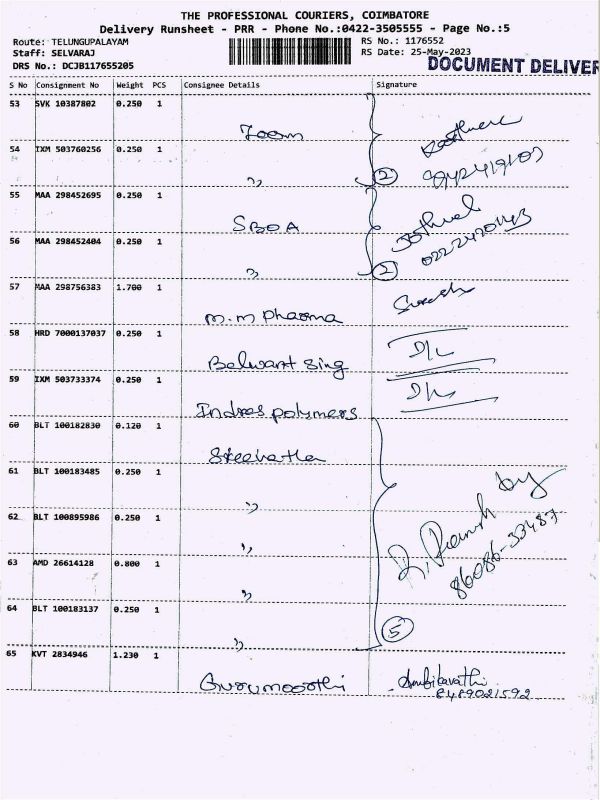 THE PROFESSIONAL COURIERS, COIMBATORE
Delivery Runsheet - PRR - Phone No.:0422-3505555 - Page No.:5
Route: TELUNGUPALAYAM
Staff: SELVARAJ
DRS No.: DCJB117655205
RS No.: 1176552
RS Date: 25-May-2023
DOCUMENT DELIVER
S No Consignment No Weight PCS Consignee Details Signature
53 SVK 10387802 0.250 1
Zoom
54 IXM 503760256 0.250 1
" 2
55 MAA 298452695 0.250 1
SBOA
56 MAA 298452404 0.250 1
" 2
57 MAA 298756383 1.700 1
M.M Pharma Suresh
58 HRD 7000137037 0.250 1
Balwant Sing D/L
59 IXM 503733374 0.250 1
Indres polymers D/L
60 BLT 100182830 0.120 1
Sreevatha
61 BLT 100183485 0.250 1
"
62 BLT 100895986 0.250 1
"
86086-33487
63 AMD 26614128 0.800 1
"
64 BLT 100183137 0.250 1
" 5
65 KVT 2834946 1.230 1
Gurumoorthi
8489021592